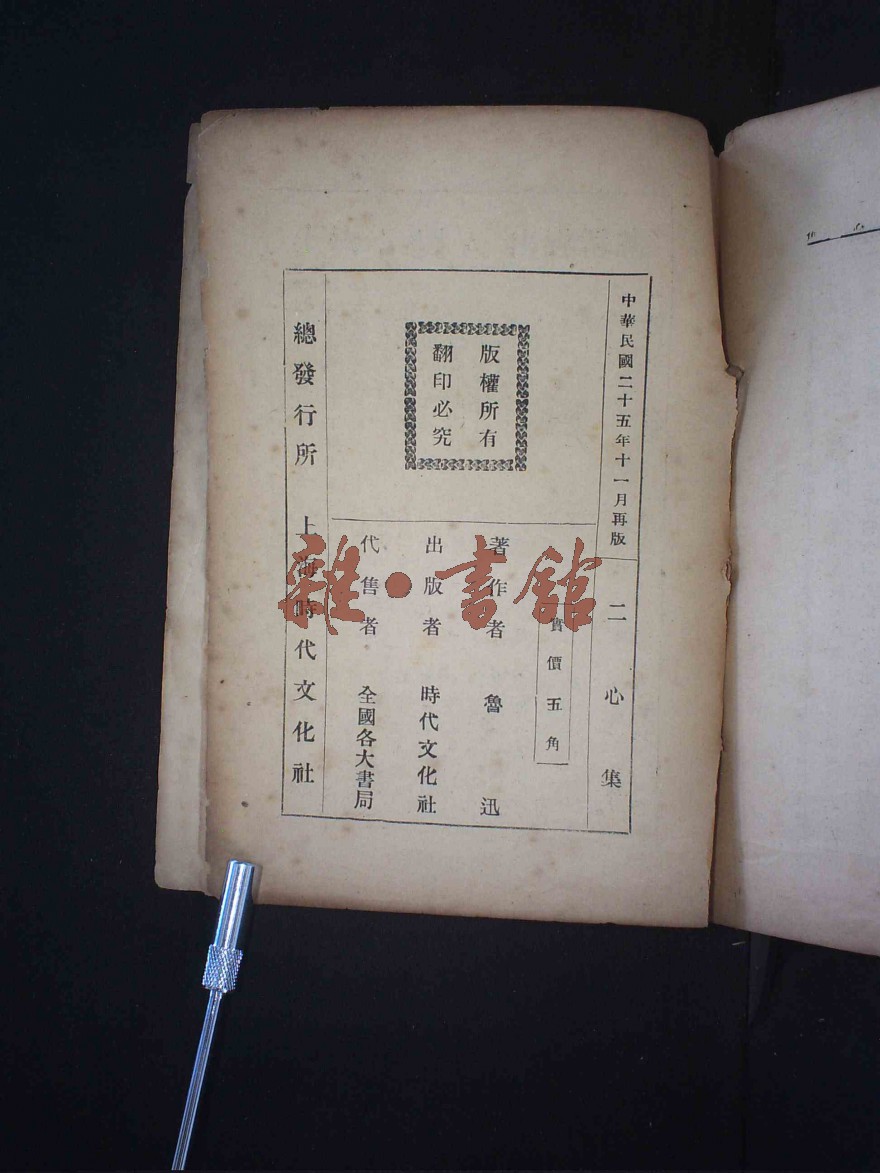 中華民國二十五年十一月再版
二心集
版權所有
翻印必究
實價五角
著作者 魯迅
出版者 時代文化社
代售者 全國各大書局
總發行所 上海時代文化社
雜·書館